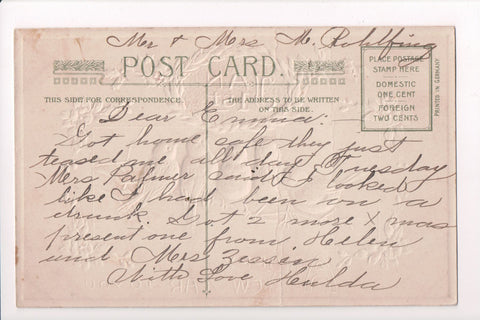 Mr + Mrs M. Rohlfing
POST CARD.
PLACE POSTAGE
STAMP HERE
DOMESTIC
ONE CENT
FOREIGN
TWO CENTS
PRINTED IN GERMANY
THIS SIDE FOR CORRESPONDENCE
THE ADDRESS TO BE WRITTEN
ON THIS SIDE.
Dear Emma:
Got home safe they just
teased me all day Tuesday
Mrs Palmer said I looked
like I had been on a
drunk. Got 2 more Xmas
present one from Helen
und Mrs Zessen
With Love Hulda